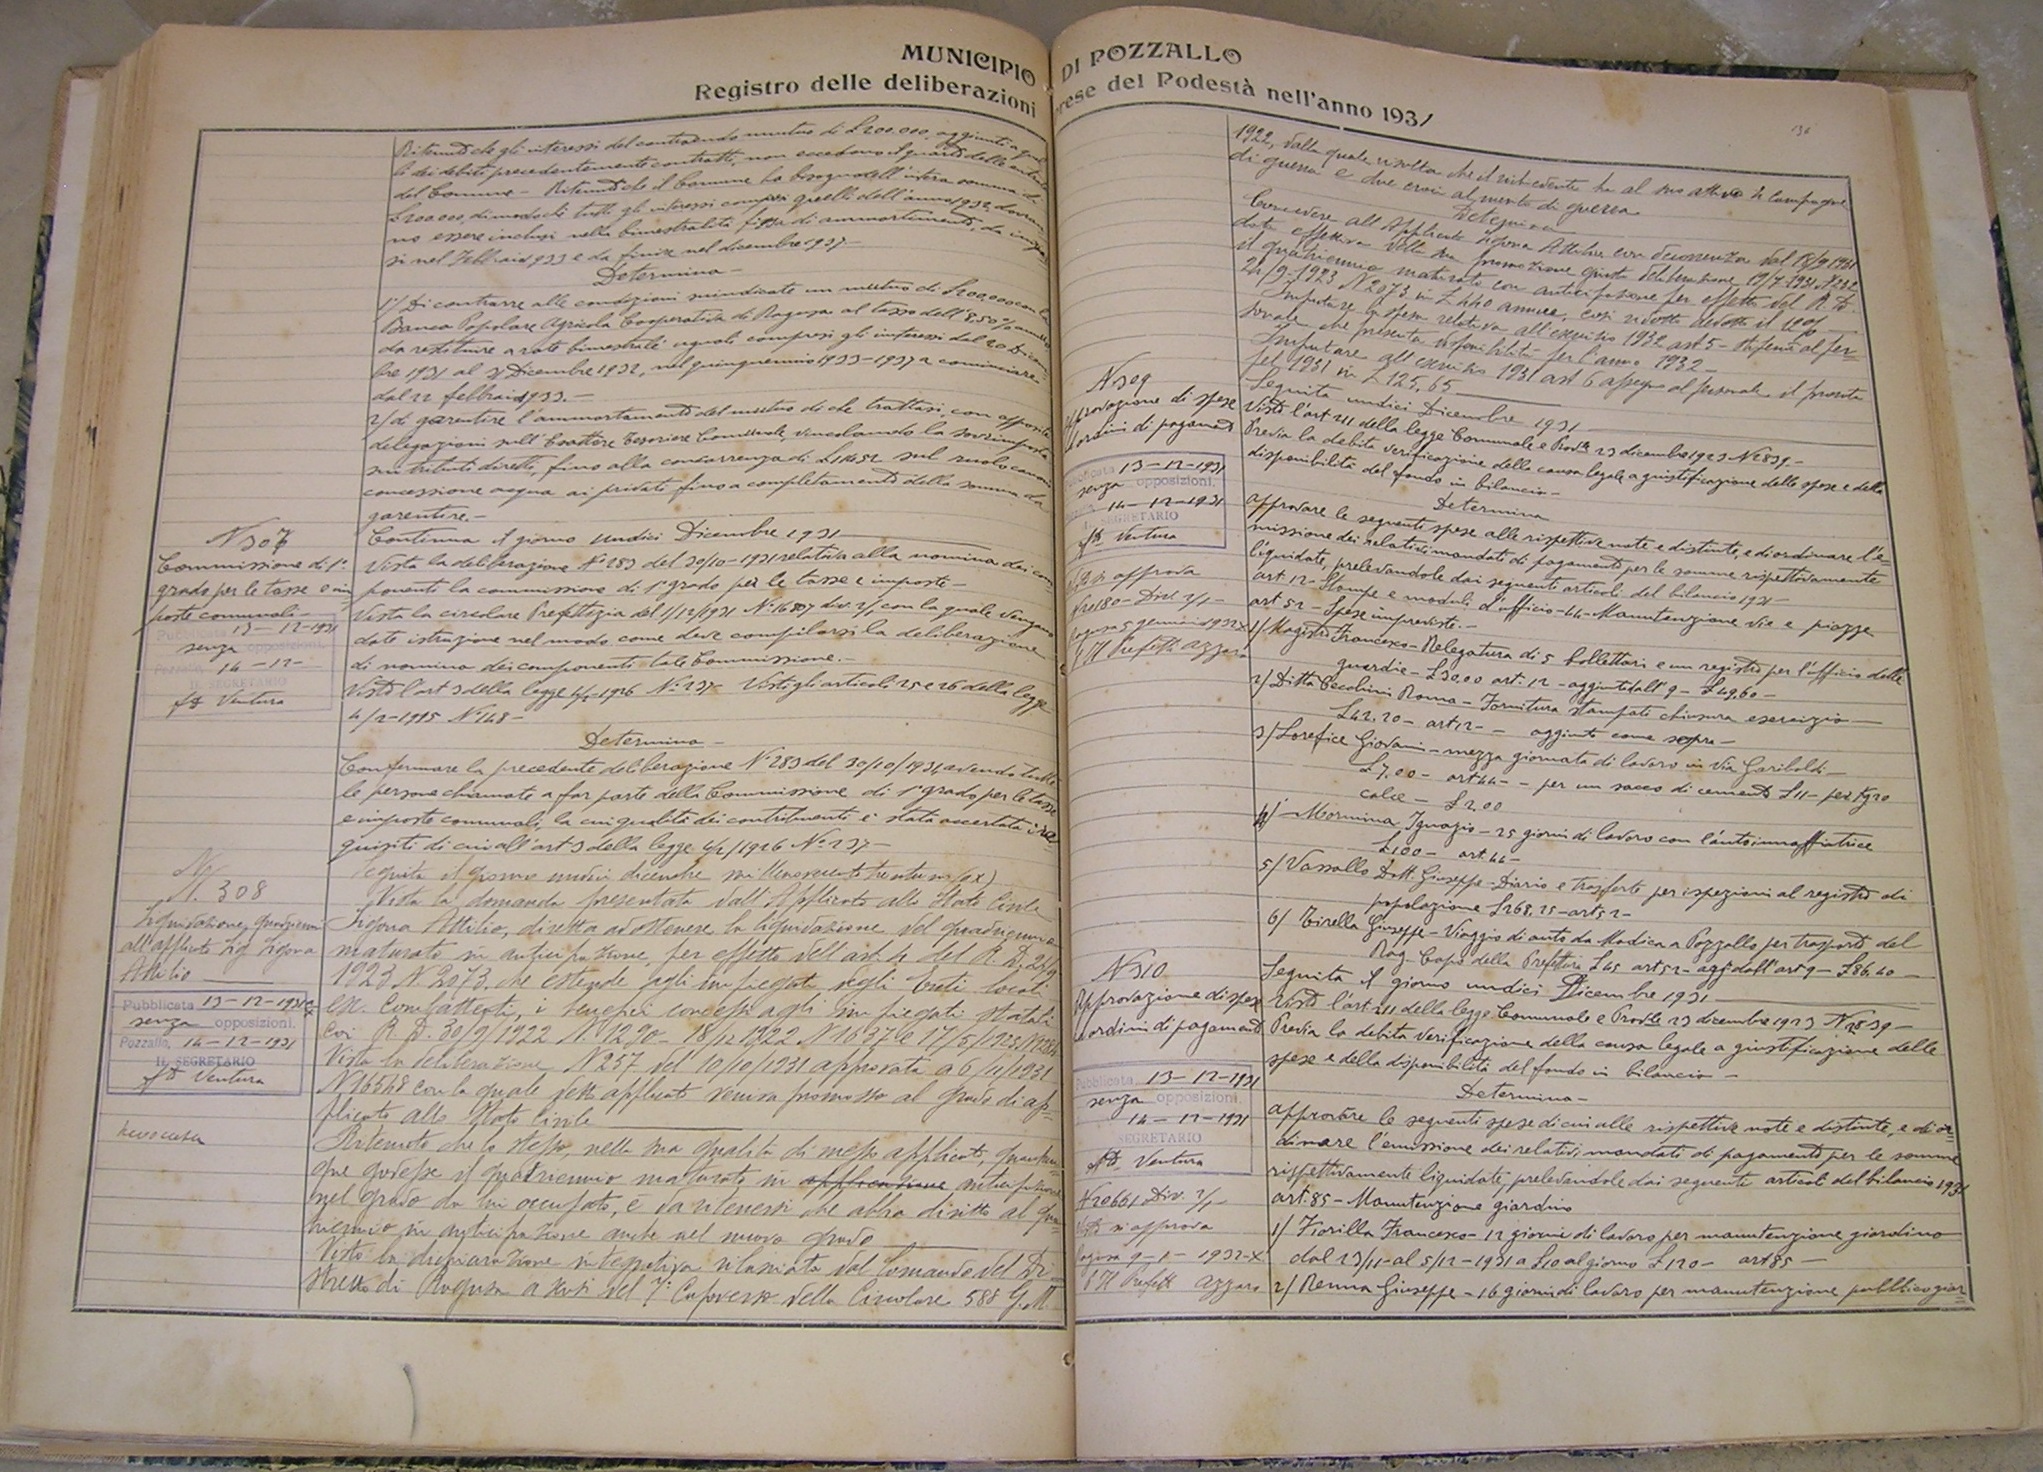 MUNICIPIO DI POZZALLO
Registro delle deliberazioni prese del Podestà nell'anno 1931
Ritenuto che gli interessi del contraendo mutuo di £200.000, aggiunti a quel
li dei debiti precedentemente contratti, non eccedono il quarto delle entrate
del Comune - Ritenuto che il Comune ha bisogno dell'intera somma di
£200.000, di modochè tutti gli interessi compresi quelli dell'anno 1932, dovran
no essere inclusi nella bimestralità fissa di ammortamento, da iniziar
si nel Febbraio 1933 e da finire nel dicembre 1937 -
Determina -
1°/ Di contrarre alle condizioni suindicate un mutuo di £200,000 con la
Banca Popolare Agricola Cooperativa di Ragusa al tasso dell'8,50% annuo
da restituire a rate bimestrali uguali compresi gli interessi del 20 Dicem
bre 1931 al 31 Dicembre 1932, nel quinquennio 1933-1937 a cominciare
dal 22 febbraio 1933. -
2/ di garentire l'ammortamento del mutuo di che trattasi, con apposite
delegazioni sull'Esattore Tesoriere Comunale vincolando la sovrimposta
sui tributi diretti, fino alla concorrenza di sul ruolo canoni
concessione acqua ai privati fino a completamento della somma da
garentire. -
N 307
Commissione di 1°
grado per le tasse e im
poste comunali -
Pubblicata 13-12-1931
senza opposizioni.
Pozzallo, 14-12-
IL SEGRETARIO
fto Ventura
Continua il giorno undici Dicembre 1931
Vista la deliberazione N° 283 del 30/10-1931 relativa alla nomina dei com
ponenti la commissione di 1° grado per le tasse e imposte -
Vista la circolare Prefettizia del 1/12/1931 N° 16807 div. 2/1 con la quale vengono
date istruzione nel modo come deve compilarsi la deliberazione
di nomina dei componenti tale Commissione. -
Visto l'art 3 della legge 4/2-1926 N° 237 - Visti gli articoli 25 e 26 della legge
4/2-1915 N° 148 -
Determina -
Confermare la precedente deliberazione N° 283 del 30/10/1931, avendo tutte
le persone chiamate a far parte della Commissione di 1° grado per le tasse
e imposte comunali, la cui qualità dei contribuenti è stata accertata i re
quisiti di cui all'art 3 della legge 4/2/1926 N° 237 -
N. 308
Liquidazione quadriennio
all'applicato Sig. Sigona
Attilio
Pubblicata 13-12-1931
senza opposizioni.
Pozzallo, 14-12-1931
IL SEGRETARIO
fto Ventura
Seguita il giorno undici dicembre millenovecento trentuno (ax)
Vista la domanda presentata dall'Applicato allo Stato Civile
Sigona Attilio, diretta ad ottenere la liquidazione del quadriennio
maturato in anticipazione, per effetto dell'art. 4 del R. D. 24/9
1923 N 2073, che estende agli impiegati degli Enti locali
ex Combattenti, i benefici concessi agli impiegati statali
coi R. D. 30/9/1922 N. 1290 - 18/12/1922 N 1637 e 17/5/1923 N
Vista la deliberazione N 257 del 10/10/1931 approvata a 6/11/1931
N 16548 con la quale detto applicato veniva promosso al grado di ap-
plicato allo Stato Civile
Ritenuto che lo stesso, nella sua qualità di messo applicato, quantun
que godesse il quadriennio maturato in applicazione anticipazione
nel grado da lui occupato, è da ritenersi che abbia diritto al qua-
driennio in anticipazione anche nel nuovo grado
Vista la dichiarazione integrativa rilasciata dal Comando del Di-
stretto di Ragusa a sensi del 7° Capoverso della Circolare 588 G. M.
130
1922, dalla quale risulta che il richiedente ha al suo attivo 4 campagne
di guerra e due croci al merito di guerra
Determina
Concedere all'Applicato Sigona Attilio con decorrenza dal 18/9 1931
data effettiva della sua promozione giusta deliberazione 19/7-1931 N 232
il quadriennio maturato con anticipazione per effetto del R. D.
24/9-1923 N 2073 in £ 440 annue, così ridotto dedotto il 12%
Imputare la spesa relativa all'esercizio 1932 art 5 - stipendi al per-
sonale che presenta disponibilità per l'anno 1932 -
Imputare all'esercizio 1931 art 6 assegno al personale il
pel 1931 in £ 125,65
N 309
Approvazione di spese
e ordini di pagamento
Pubblicata 13-12-1931
senza opposizioni.
14-12-1931
IL SEGRETARIO
fto Ventura
si approva
N° 20180 - Div. 2/1 -
Ragusa 5 gennaio 1932-X
p Il Prefetto Azzaro
Seguita undici Dicembre 1931
Visto l'art 211 della legge Comunale e Prov.le 23 dicembre 1923 N 2839 -
Previa la debita verificazione della causa legale a giustificazione delle spese e della
disponibilità del fondo in bilancio -
Determina
approvare le seguenti spese alle rispettive note e distinte, e di ordinare l'e-
missione dei relativi mandati di pagamento per le somme rispettivamente
liquidate, prelevandole dai seguenti articoli del bilancio 1931 -
art 12 - Stampe e moduli d'ufficio - 44 - Manutenzione vie e piazze
art 52 - Spese impreviste. -
1/ Magistri Francesco - Relegatura di 5 bollettari e un registro per l'ufficio delle
guardie - £30,00 art. 12 - aggiunti dall'9 - £49,60 -
2/ Ditta Cecchini Roma - Fornitura stampati chiusura esercizio
£42,20 - art 12 - - aggiunto come sopra -
3/ Lorefice Giovanni - mezza giornata di lavoro in Via Garibaldi -
£7,00 - art 44 - - per un sacco di cemento £11 - per Kg 20
calce - £2,00
4/ Mormina Ignazio - 25 giorni di lavoro con l'autoinnaffiatrice
£100 - art. 44 -
5/ Vassallo Dott. Giuseppe - Diario e trasferte per ispezioni al registro di
popolazione £268,25 - art 52 -
6/ Tirella Giuseppe - Viaggio di auto da Modica a Pozzallo per trasporto del
Rag. Capo della Prefettura £45 art 52 - agg. dall'art 9 - £86,40
N 310
Approvazione di spese
e ordini di pagamento
Pubblicata 13-12-1931
senza opposizioni.
14-12-1931
SEGRETARIO
fto. Ventura
N 20661 Div. 2/1
Visto si approva
Ragusa 9-1-1932-X
p Il Prefetto Azzaro
Seguita il giorno undici Dicembre 1931
Visto l'art 211 della legge Comunale e Prov.le 23 dicembre 1923 N 2839 -
Previa la debita verificazione della causa legale a giustificazione delle
spese e della disponibilità del fondo in bilancio -
Determina -
approvare le seguenti spese di cui alle rispettive note e distinte, e di or-
dinare l'emissione dei relativi mandati di pagamento per le somme
rispettivamente liquidate, prelevandole dai seguenti articoli del bilancio 1931
art. 85 - Manutenzione giardino
1/ Fiorilla Francesco - 12 giorni di lavoro per manutenzione giardino
dal 23/11 - al 5/12-1931 a £10 al giorno £120 - art 85 -
2/ Renna Giuseppe - 16 giorni di lavoro per manutenzione pubblico giar=